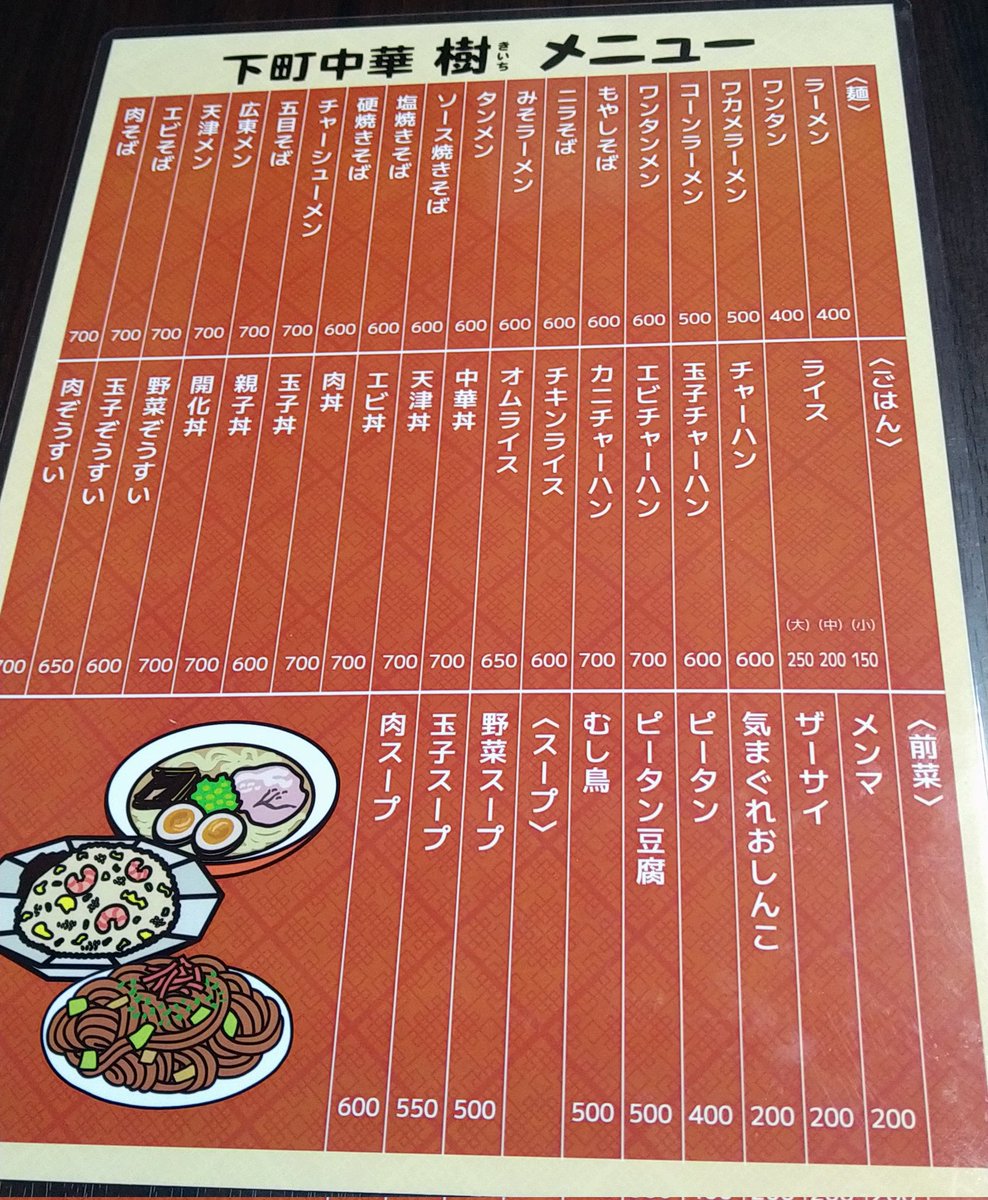 下町中華 樹 きいち メニュー
〈麺〉
ラーメン 400
ワンタン 400
ワカメラーメン 500
コーンラーメン 500
ワンタンメン 600
もやしそば 600
ニラそば 600
みそラーメン 600
タンメン 600
ソース焼きそば 600
塩焼きそば 600
硬焼きそば 600
チャーシューメン 700
五目そば 700
広東メン 700
天津メン 700
エビそば 700
肉そば 700
〈ごはん〉
ライス (小) 150 (中) 200 (大) 250
チャーハン 600
玉子チャーハン 600
エビチャーハン 700
カニチャーハン 700
チキンライス 600
オムライス 650
中華丼 700
天津丼 700
エビ丼 700
肉丼 700
玉子丼 600
親子丼 700
開化丼 700
野菜ぞうすい 600
玉子ぞうすい 650
肉ぞうすい 700
〈前菜〉
メンマ 200
ザーサイ 200
気まぐれおしんこ 200
ピータン 400
ピータン豆腐 500
むし鳥 500
〈スープ〉
野菜スープ 500
玉子スープ 550
肉スープ 600